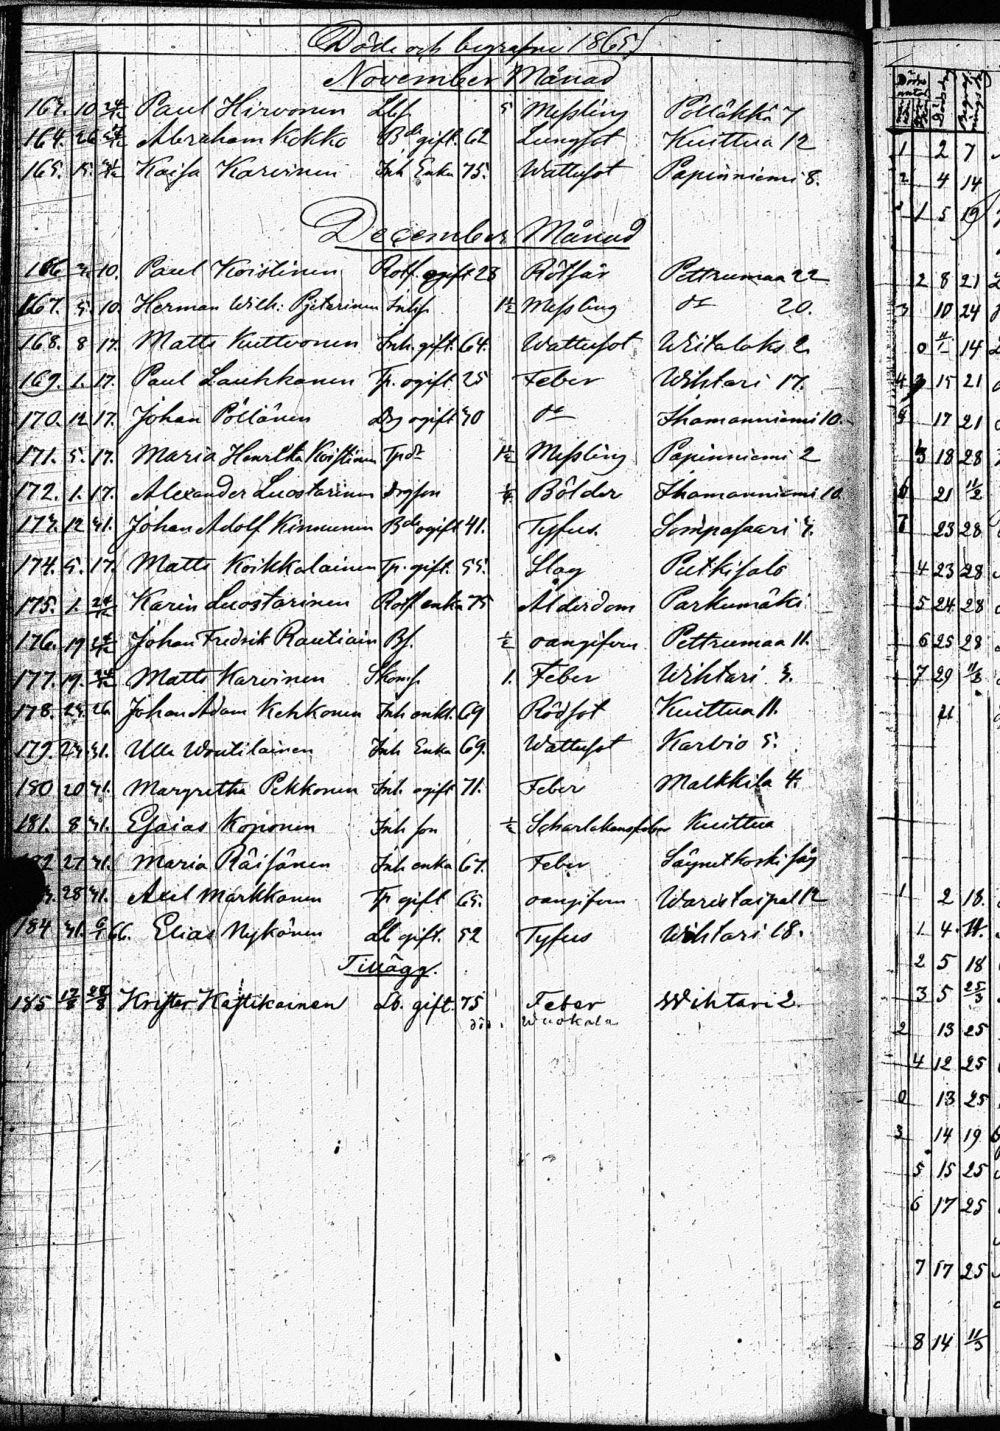 Döde och begrafne 1865
November Månad
163. 10 24/12 Paul Hirvonen Lbs. 5 Messling Pölläkkä 7
164. 26 Abraham Kokko Bde gift. 62 Lungsot Kuittua 12
165. 15. Kaisa Karvinen Inh Enka 75. Wattusot Papinniemi 8.
December Månad
166. 10. Paul Koistinen Rotf. ogift 28 Rötfeber Pettrumaa 22
167. 5. 10. Herman Wilh. Pjetarinen Inhs. 1½ Messling do 20.
168. 8 17. Matts Kuttvonen Inh. gift. 64. Wattusot Writalaks 2
169. 1. 17. Paul Laukkanen Tp. ogift 25 Feber Wihtari 17.
170. 12 17. Johan Pöllänen Drg ogift 40 do Ihamanniemi 10.
171. 5. 17. Maria Henrika Koistinen Tpdr 1½ Messling Papinniemi 2
172. 1. 17. Alexander Luostarinen Drgson Bölder Ihamanniemi 10
173. 12 31. Johan Adolf Kinnunen Bde ogift 41. Tyfus. Sompasaari 3.
174. 5. 17. Matts Koikkalainen Tp. gift. 55. Slag Putkisalo
175. 1. 24/12 Karin Luostarinen Rotf enka 75 Ålderdom Parkumäki
176. 19 24/12 Johan Fredrik Rautiain Bs. ½ oangifven Pettrumaa 11.
177. 19. 24/12 Matts Karvinen Skoms. 1. Feber Wihtari 3.
178. 23. 26. Johan Adam Kekkonen Inh enkl. 69 Rödsot Kuittua 11.
179. 23. 31. Ulla Woutilainen Inh Enka 69. Wattusot Karvio 5.
180 20 31. Margretha Pekkonen Inh ogift 71. Feber Malkkila 4.
181. 8 31. Esaias Koponen Inh son ½ Scharlakansfeber Kuittua
182 27 31. Maria Räisänen Inh enka 67. Feber Säynetkoski såg
28 31. Axel Markkanen Tp gift 65. oangifven Waristaipal 12
184 31. 6/1 66. Elias Nykänen Lb gift. 52 Tyfus Wihtari 18.
Tillägg.
185 17/8 28/8 Krister Hastikainen Lb. gift. 75 Feber Wihtari 2.
död. Wuokala
Döde
1 2 7
2 4 14
1 5 19
2 8 21
3 10 24
0 14
4 15 21
5 17 21
3 18 28
6 21 11/2
7 23 28
4 23 28
5 24 28
6 25 28
7 29 11/3
1 2 18.
1 4 11.
2 5 18
3 5 25/3
2 13 25
4 12 25
0 13 25
3 14 19
5 15 25
6 17 25
7 17 25
8 14 11/3